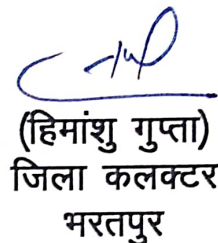 (हिमांशु गुप्ता)
जिला कलक्टर
भरतपुर